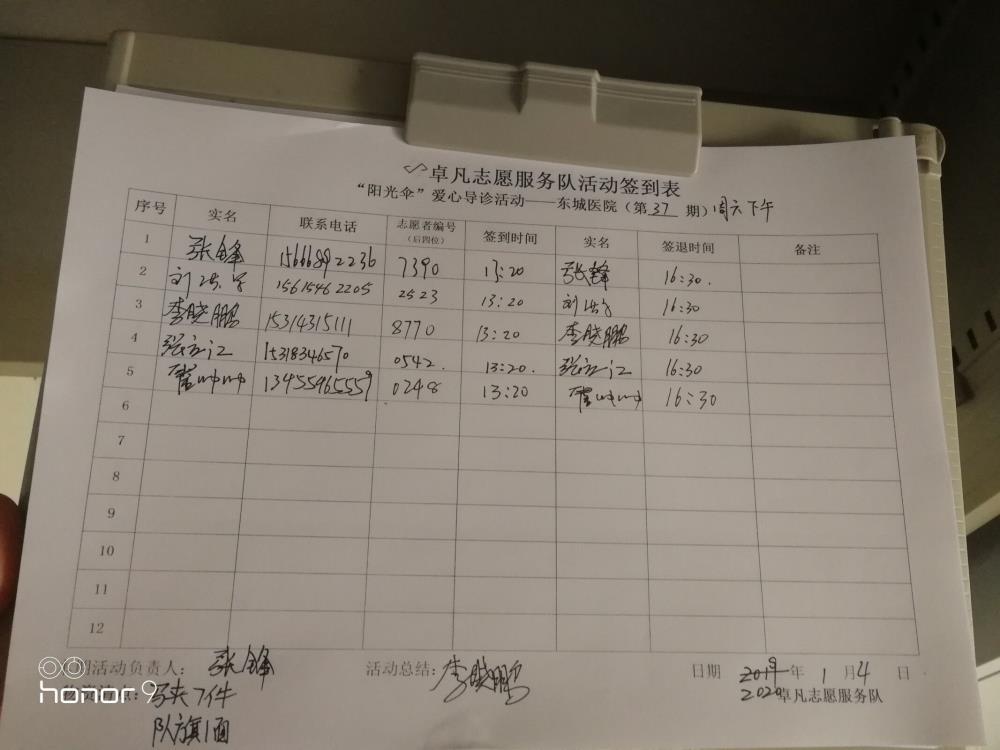 卓凡志愿服务队活动签到表
“阳光伞”爱心导诊活动——东城医院(第37期)周六下午
序号 实名 联系电话 志愿者编号(后四位) 签到时间 实名 签退时间 备注
1 张锋 15666892236 7390 13:20 张锋 16:30.
2 刘 15615462205 2523 13:20 刘 16:30
3 李晓鹏 15314315111 8770 13:20 李晓鹏 16:30
4 张立江 15318346570 0542. 13:20. 张立江 16:30
5 崔坤坤 13455465559 0248 13:20 崔坤坤 16:30
6
7
8
9
10
11
12
活动负责人: 张锋 活动总结: 李晓鹏 日期 2019年1月4日
马夹7件 2020 卓凡志愿服务队
队旗1面
honor 9